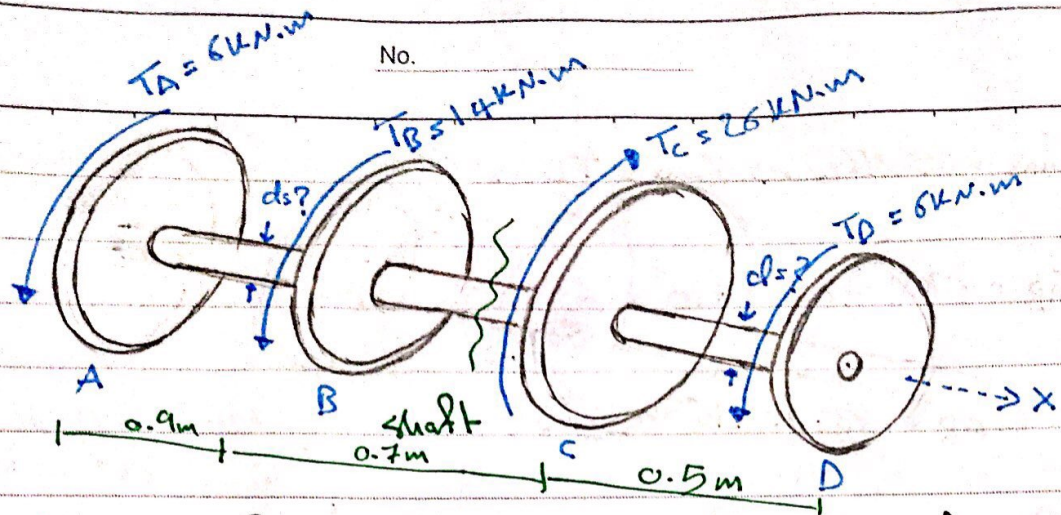 No.
TA = 6KN.m
TB = 14KN.m
TC = 26KN.m
TD = 6KN.m
ds?
d=?
A
B
C
D
X
shaft
0.9m
0.7m
0.5m